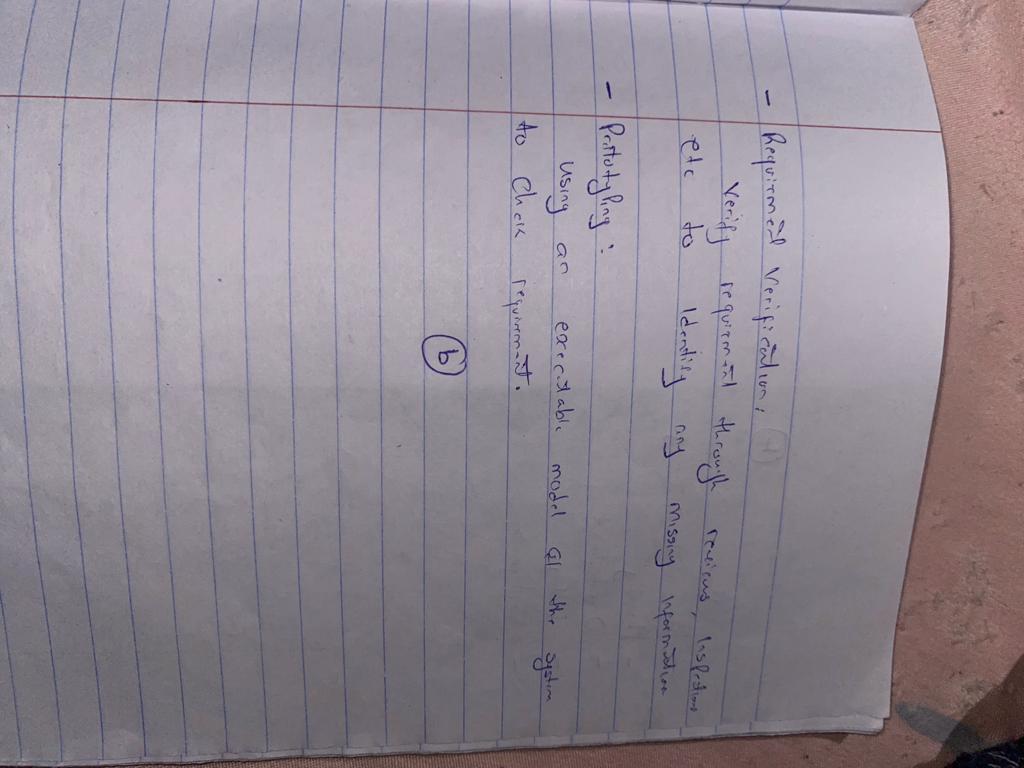 - Requirment Verification:
Verify requirment through reviews, Inspections
etc to Identify any missing Information
- Prototyping :
Using an executable model of the system
to Check requirment.
b